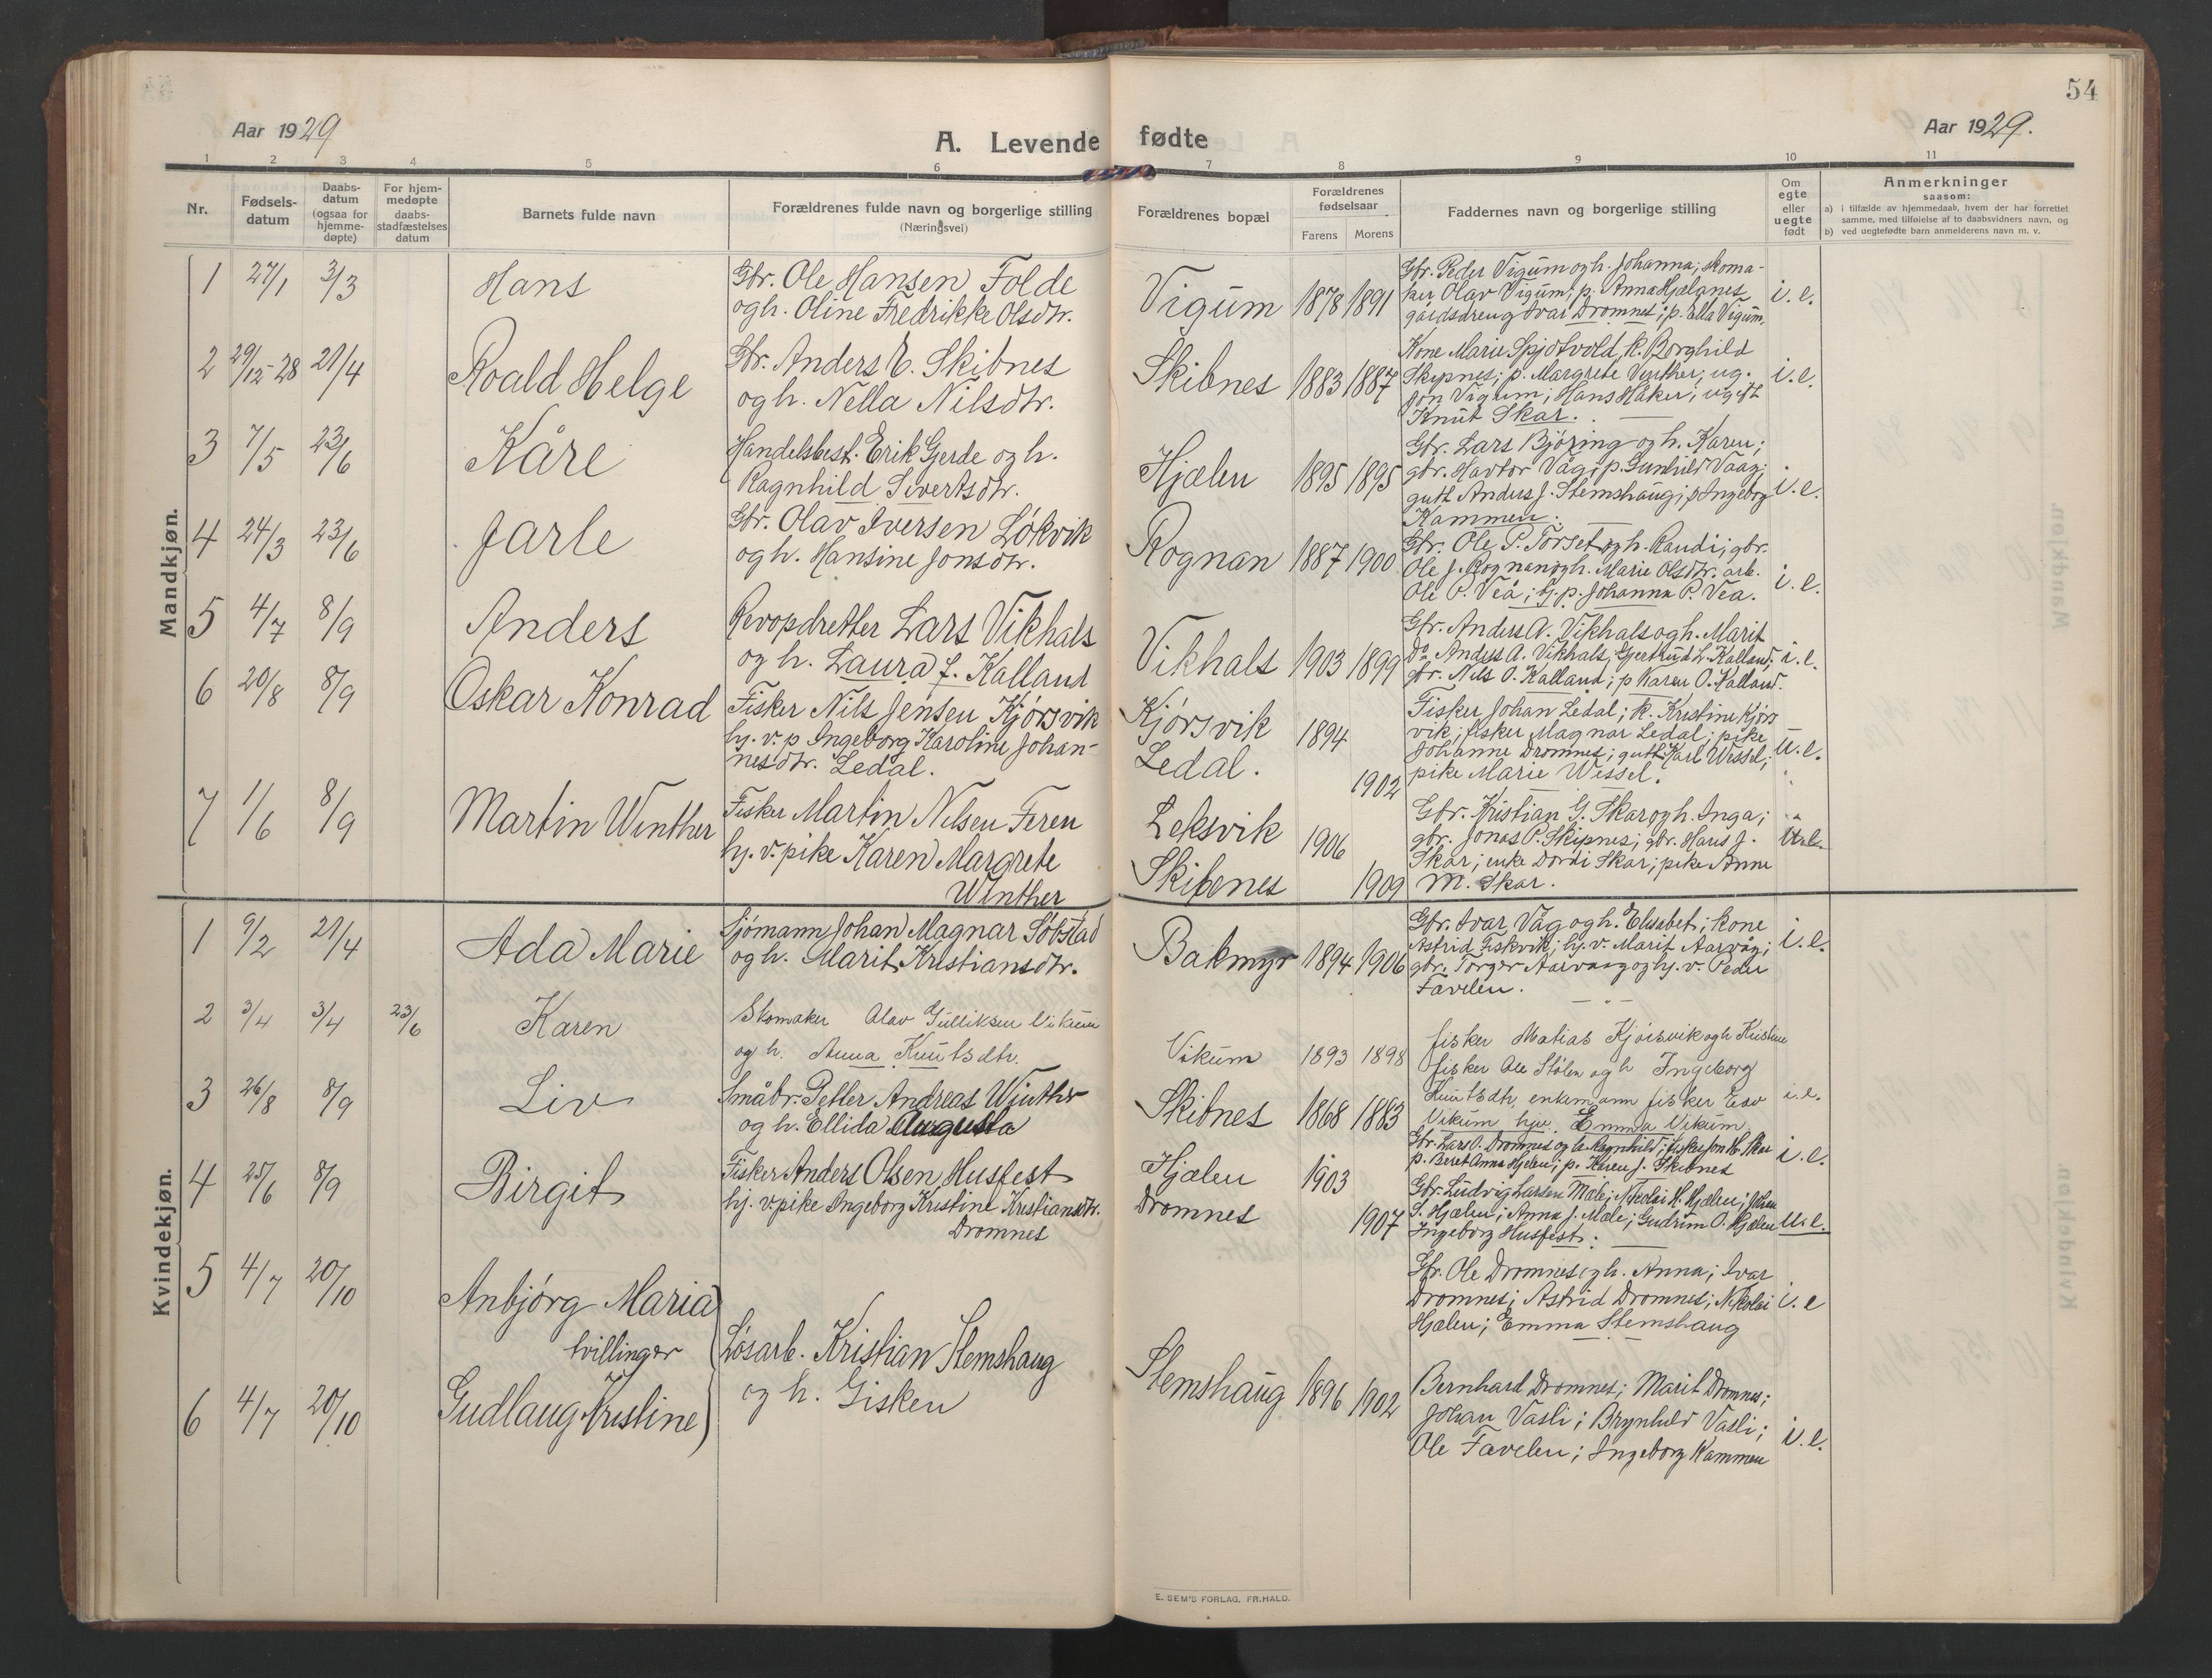 54
Aar 1929
A. Levende fødte
Aar 1929.
1 2 3 4 5 6 7 8 9 10 11
Nr.
Fødsels-
datum
Daabs-
datum
(ogsaa for
hjemme-
døpte)
For hjem-
medøpte
daabs-
stadfæstelses
datum
Barnets fulde navn
Forældrenes fulde navn og borgerlige stilling
(Næringsvei)
Forældrenes bopæl
Forældrenes
fødselsaar
Farens Morens
Faddernes navn og borgerlige stilling
Om
egte
eller
uegte
født
Anmerkninger
saasom:
a) i tilfælde av hjemmedaab, hvem der har forrettet
samme, med tilføielse af to daabsvidners navn, og
b) ved uegtefødte barn anmelderens navn m. v.
Mandkjøn.
1 27/1 3/3 Hans
Gbr. Ole Hansen Folde
og h. Oline Fredrikke Olsdtr.
Vigum 1878 1891
Gbr. Peder Vigum og h. Johanna; skoma-
ker Olav Vigum; p. Anna Hjælanes
gårdsdreng Ivar Dromnes; p. Ella Vigum.
i. e.
2 29/12-28 21/4 Roald Helge
Gbr. Anders E. Skibnes
og h. Nella Nilsdtr.
Skibnes 1883 1887
Kone Marie Spjøtvold, k. Borghild
Skipnes; p. Margrete Vinther; ug.
Jon Vigum; Hans Haker; ugift
Knut Skar.
i. e.
3 7/5 23/6 Kåre
Handelsbest. Erik Gjerde og h.
Ragnhild Sivertsdtr.
Hjælen 1895 1895
Gbr. Lars Bjøring og h. Karen;
gbr. Havtor Våg; p. Gunhild Vaag;
gutt Anders J. Stemshaug; p Ingeborg
Kammen.
i. e.
4 24/3 23/6 Jarle
Gbr. Olav Iversen Løkvik
og h. Hansine Jonsdtr.
Rognan 1887 1900
Gbr. Ole P. Torset og h. Randi; gbr.
Ole J. Rognan og h. Marie Olsdtr. arb.
Ole P. Vea; g. p. Johanna P. Vea.
i. e.
5 4/7 8/9 Anders
Revopdretter Lars Vikhals
og h. Laura J. Kalland
Vikhals 1903 1899
Gbr. Anders A. Vikhals og h. Marit
Do Anders A. Vikhals; Gjertrud L. Kalland;
gbr. Nils O. Kalland; p Karen O. Kalland.
i. e.
6 20/8 8/9 Oskar Konrad
Fisker Nils Jensen Kjørsvik
hj. v. p Ingeborg Karoline Johan-
nesdtr. Ledal.
Kjørsvik 1894
Ledal. 1902
Fisker Johan Ledal; k. Kristine Kjørs
vik; fisker Magnar Ledal; pike
Johanne Dromnes; gutt Karl Wessel;
pike Marie Wessel.
u. e.
7 1/6 8/9 Martin Winther
Fisker Martin Nilsen Feren
hj. v. pike Karen Margrete
Winther
Leksvik 1906
Skibenes 1909
Gbr. Kristian G. Skar og h. Inga;
gbr. Jonas P. Skipnes; gbr. Hans J.
Skar; enke Dordi Skar; pike Anne
M. Skar.
u. e.
Kvindekjøn.
1 9/2 21/4 Ada Marie
Sjømann Johan Magnar Søbstad
og h. Marit Kristiansdtr.
Bakmyr 1894 1906
Gbr. Ivar Våg og h. Elisabet; kone
Astrid Fiskvik; hj. v. Marit Aarvåg;
gbr. Torger Aarvaag og hj. v. Peder
Tavelen.
i. e.
2 3/4 3/4 23/6 Karen
Skomaker Olav Gulliksen Vikum
og h. Anna Knutsdtr.
Vikum 1893 1898
fisker Matias Kjørsvik og h Kristine
fisker Ole Stølen og h Ingeborg
Knutsdtr, enkemann fisker Esv
Vikum hjv. Emma Vikum
i. e.
3 26/8 8/9 Liv
Småbr. Petter Andreas Winther
og h. Ellida Augusta
Skibnes 1868 1883
Gbr. Lars O. Dromnes og h. Ragnhild; fisker Jon H. Skar
p. Beret Anna Hjelen; p. Karen J. Skibnes
i. e.
4 25/6 8/9 Birgit
Fisker Anders Olsen Husfest
hj. v. pike Ingeborg Kristine Kristiansdtr.
Dromnes
Hjælen 1903
Dromnes 1907
Gbr. Ludvig Larsen Mæle; Nikolai H. Hjælen; Johan
S. Hjælen; Anna J. Mæle; Gudrun O. Hjælen
Ingeborg Husfest.
u. e.
5 4/7 20/10 Anbjørg Maria
tvillinger
Løsarb. Kristian Stemshaug
og h. Gisken
Gbr. Ole Dromnes og h. Anna; Ivar
Dromnes; Astrid Dromnes; Nikolai
Hjælen; Emma Stemshaug
i. e
6 4/7 20/10 Gudlaug Kristine
Stemshaug 1896 1902
Bernhard Dromnes; Marit Dromnes;
Johan Vasli; Brynhild Vasli;
Ole Tavelen; Ingeborg Kammen
i. e.
E. SEM'S FORLAG, FR.HALD.